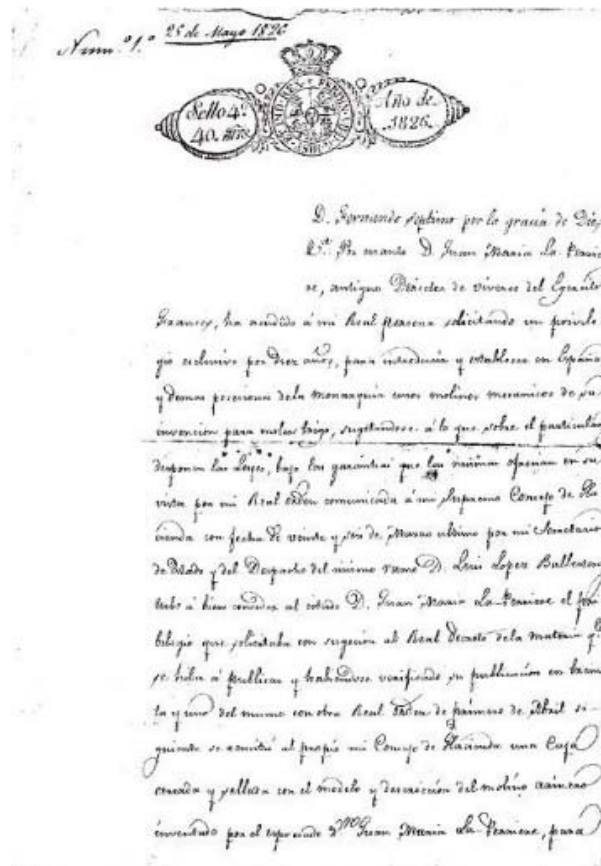 Num.º 1.º 25 de Mayo 1826
Sello 4º
40. mrs
Año de
1826.
D. Fernando septimo por la gracia de Dios
&ª Por cuanto D. Juan Maria La-Perrie
re, antiguo Director de viveres del Egercito
Frances, ha acudido á mi Real persona solicitando un privile
gio esclusivo por Diez años, para introducir y establecer en España
y demas posesiones dela Monarquia unos molinos mecanicos de su
invencion para moler trigo, sugetandose á lo que sobre el particular
disponen las Leyes, bajo las garantias que las mismas ofrecian en su
vista por mi Real orden comunicada á mi Supremo Consejo de Ha
cienda con fecha de veinte y seis de Marzo ultimo por mi Secretario
de Estado y del Despacho del mismo ramo D. Luis Lopez Ballesteros
tube á bien conceder al citado D. Juan Maria La-Perriere el pri
bilegio que solicitaba con sugecion al Real Decreto dela materia q.e
se habia á publicar y habiendose verificado su publicacion en trein
ta y uno del mismo con otra Real orden de primero de Abril si-
guiente se remitió al propio mi Consejo de Hacienda una Caja
cerrada y sellada con el modelo y descripcion del molino
inventado por el espresado D. Juan Maria La-Perriere, para